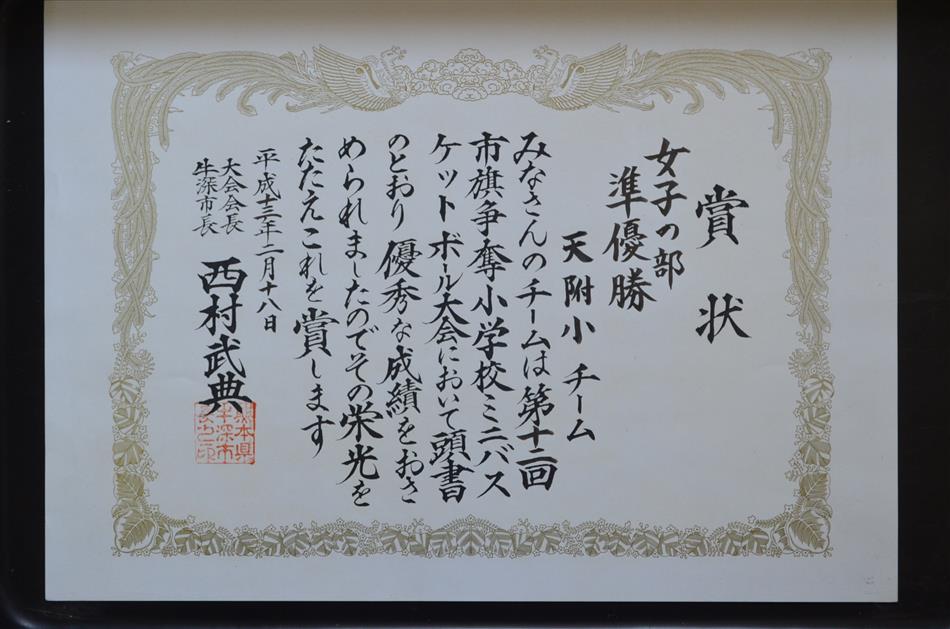 賞状
女子の部
準優勝
天附小 チーム
みなさんのチームは第十二回
市旗争奪小学校ミニバス
ケットボール大会において頭書
のとおり優秀な成績をおさ
められましたのでその栄光を
たたえこれを賞します
平成十三年二月十八日
大会会長
牛深市長
西村武典
熊本県
牛深市
長之印